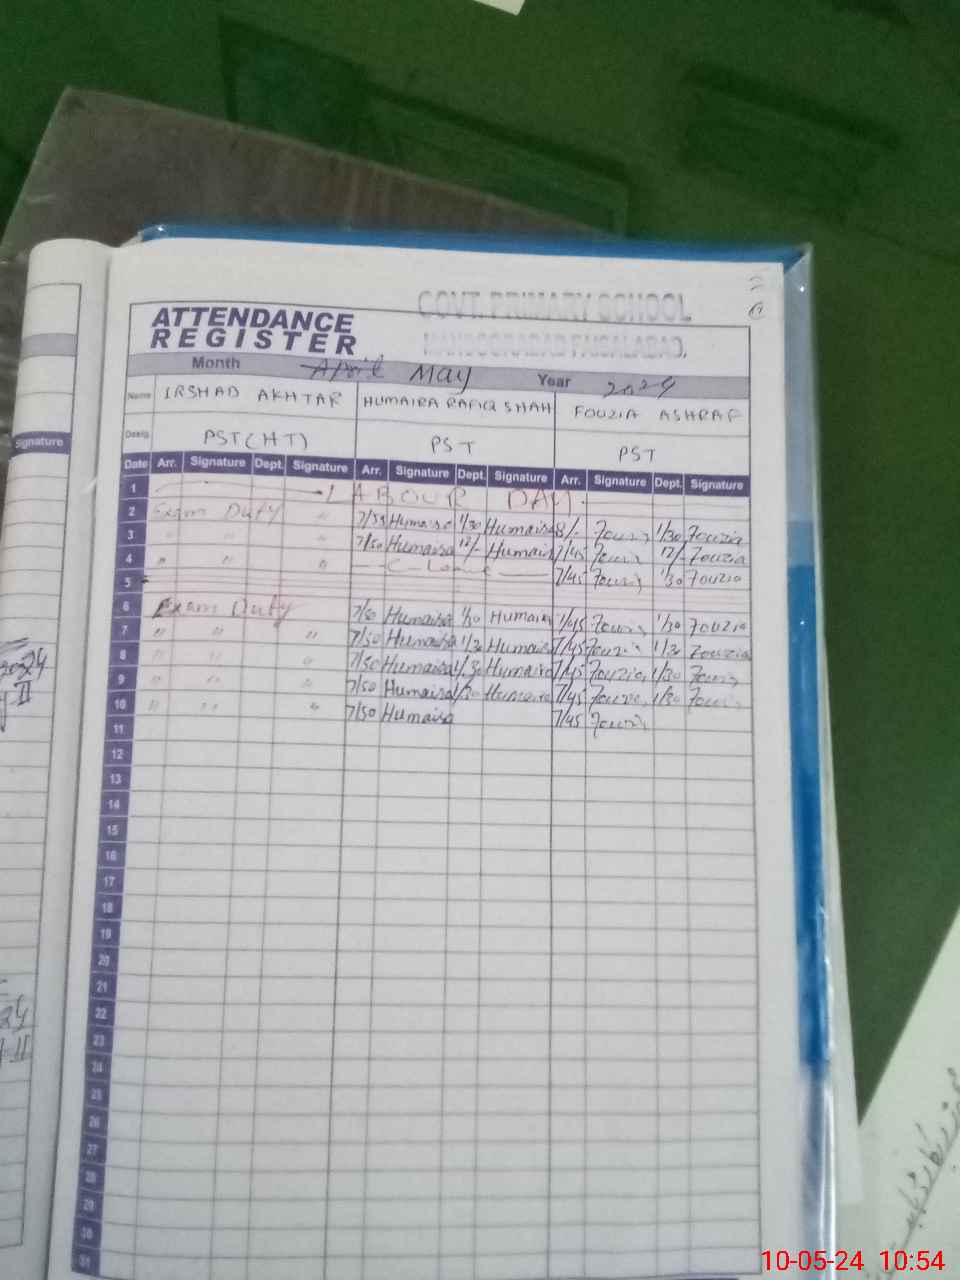 GOVT. PRIMARY SCHOOL
MANSOORABAD FAISALABAD.
ATTENDANCE
REGISTER
Month April May Year 2024
Name IRSHAD AKHTAR HUMAIRA RAFIQ SHAH FOUZIA ASHRAF
Desig. PST (HT) PST PST
Signature
Date Arr. Signature Dept. Signature Arr. Signature Dept. Signature Arr. Signature Dept. Signature
1 LABOUR DAY.
2 Exam Duty " 7/55 Humaira 1/30 Humaira 8/- Fouzia 1/30 Fouzia
3 " " " 7/50 Humaira 12/- Humaira 7/45 Fouzia 12/- Fouzia
4 " " " C-Leave 7/45 Fouzia 1/30 Fouzia
5
6 Exam Duty 7/50 Humaira 1/30 Humaira 7/45 Fouzia 1/30 Fouzia
7 " " " 7/50 Humaira 1/30 Humaira 7/45 Fouzia 1/30 Fouzia
8 " " " 7/50 Humaira 1/30 Humaira 7/45 Fouzia 1/30 Fouzia
9 " " " 7/50 Humaira 1/30 Humaira 7/45 Fouzia 1/30 Fouzia
10 " " " 7/50 Humaira 7/45 Fouzia
11
12
13
14
15
16
17
18
19
20
21
22
23
24
25
26
27
28
29
30
31
2024
II
24
II
10-05-24 10:54